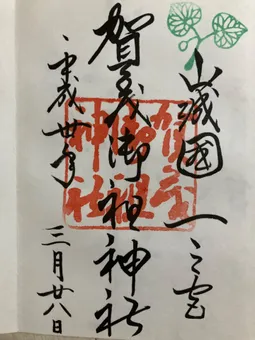 山城國一之宮
賀茂御祖神社
平成年三月廿八日
賀茂
御祖
神社